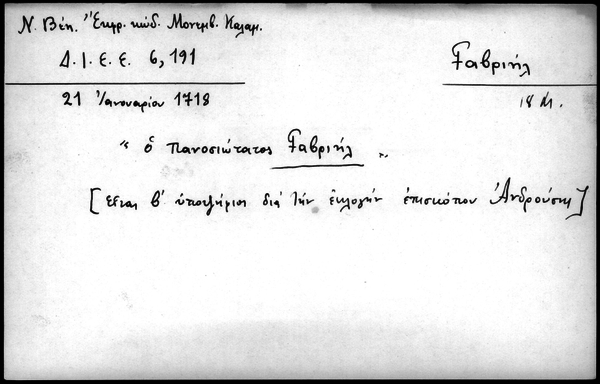 Ν. Βέη. Ἔκφρ. κώδ. Μονεμβ. Καλαμ.
Δ. Ι. Ε. Ε. 6, 191
Γαβριήλ
21 Ἰανουαρίου 1718
18 αἰ.
" ὁ πανοσιώτατος Γαβριήλ "
[εἶναι β' ὑποψήφιος διὰ τὴν ἐκλογὴν ἐπισκόπου Ἀνδρούσης]